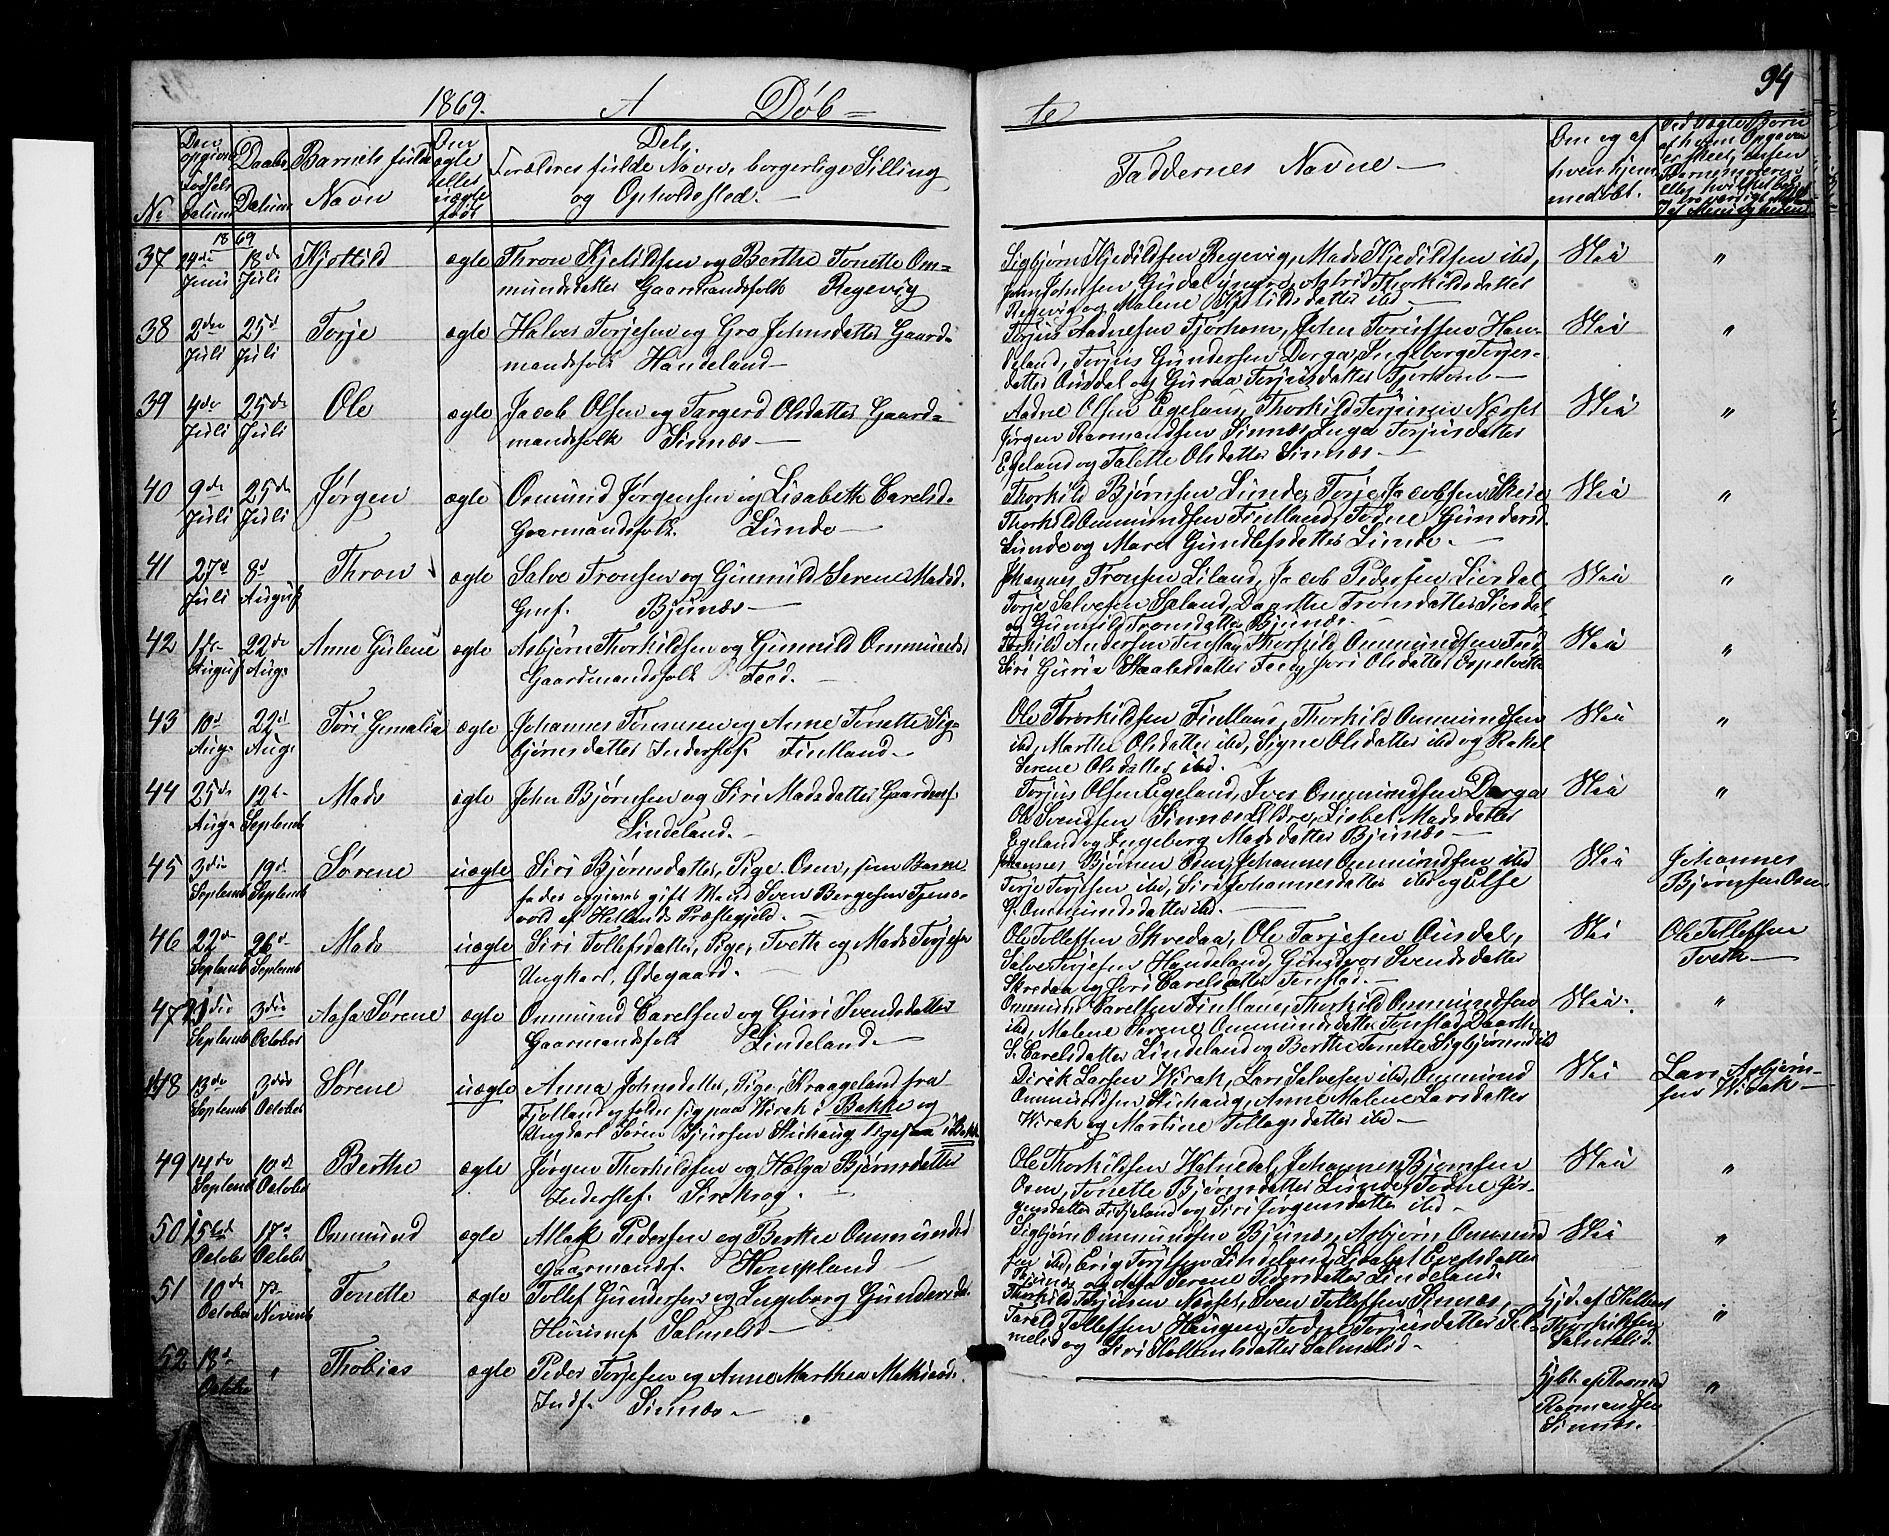 94
1869. A Døb= te
No
Den opgivne Fødsels Datum
Daabs Datum
Barnets fulde Navn
Om ægte eller uægte født
Dets Forældres fulde Navn, borgerlige Stilling og Opholdssted.
Faddernes Navne
Om og af hvem hjemmedøbt.
1869
37 14de Juni 18de Juli Kjettild ægte Thron Kjetildsen og Berthe Tonette Om=
mundsdatter Gaarmandsfolk Regevig
Sigbjørn Kjedildsen Regevig, Mads Kjedildsen ibd,
John Johnsen Gusdal yngre, Astrid Thorkildsdatter
Regevig og Malene Kjetildsdatter ibd
Nei "
38 2den Juli 25d Juli Torje ægte Halvor Torjesen og Gro Johnsdatter Gaard=
mandsfolk Handeland
Torjus Aadnesen Tjorhom, John Torissen Han=
deland, Torjus Gundersen Dorga, Ingeborg Torjes=
datter Ousdal og Guroa Torjusdatter Tjorhom
Nei "
39 4de Juli 25de Juli Ole ægte Jacob Olsen og Targerd Olsdatter Gaard=
mandsfolk Sinnæs
Aadne Olsen Egeland, Thorkild Torjusen Næsset
Jørgen Rasmundsen Sinnæs, Inga Torjusdatter
Egeland og Talette Olsdatter Sinnæs.
Nei "
40 9de Juli 25de Juli Jørgen ægte Omund Jørgensen og Lisabeth Carelsd.
Gaarmandsfolk. Lunde
Thorkild Bjørnsen Lunde, Torje Jacobsen Skeie
Thorkild Ommundsen Fintland, Todne Gundersd.
Lunde og Maret Gundlefsdatter Lunde.
Nei "
41 27d Juli 8d August Thron ægte Salve Tronsen og Gunnild Serene Madsd.
Gmf. Bjunæs
Johannes Tronsen Liland, Jacob Pedersen Siesdal,
Torje Salvesen Sæland, Daarthe Tronsdatter Siesdal
og Gunnild Tronsdatter Bjunæs.
Nei "
42 August 22de Aug. Anne Gulene ægte Asbjørn Thorkildsen og Gunnild Ommundsd
Gaardmandsfolk Feed.
Torkild Andersen Tonstag, Thorkild Ommundsen Feed
Siri Guria Staalesdatter Feed, Siri Olsdatter Espetvedt
Nei "
43 10d Aug. 22d Aug. Tori Gemalia ægte Johannes Tommesen og Anne Tonette Sig=
bjørnsdatter Inderstef. Fintland
Ole Thorkildsen Fintland, Thorkild Ommundsen
ibd, Marthe Olsdatter ibd, Signe Olsdatter ibd og Rakel
Serene Olsdatter ibd.
Nei "
44 25de Aug. 12te Septemb Mads ægte John Bjørnsen og Siri Madsdatter Gaardmf.
Lindeland.
Torjus Olsen Egeland, Iver Ommundsen Dorga
Ole Svendsen Sinnæs Lildre, Lisbet Madsdatter
Egeland og Ingeborg Madsdatter Bjunæs
Nei "
45 3die Septemb 19d. Septemb Sørene uægte Siri Bjørnsdatter, Pige. Osen, som Barne
fader opgives gift Mand Sven Bergesen Tjens=
vold af Hetlands Præstegjeld.
Johannes Bjørnsen Osen, Johannes Ommundsen ibd
Torje Torjesen ibd, Siri Johannesdatter ibd og Else
G. Ommundsdatter ibd.
Nei
Johannes
Bjørnsen Osen
46 22d Septemb 26d. Septemb Mads uægte Siri Tollefsdatter, Pige, Tveth og Mads Torjesen
Ungkarl, Ødegaard.
Ole Tollefsen Skredaa, Ole Tarjesen Ousdal,
Salve Torjesen Handeland, Gundvor Svendsdatter
Skredaa og Siri Carelsdatter Tonstad.
Nei
Ole Tollefsen
Tveth
47 Septemb 3die October Aasa Sørene ægte Ommund Carelsen og Guri Svendsdatter
Gaarmandsfolk Lindeland.
Ommund Carelsen Fintland, Thorkild Ommundsen
ibd, Malene Serene Ommundsdatter Tonstad, Daarthe
S. Carelsdatter Lindeland og Berthe Tonette Sigbjørnsd ibd
Nei. "
48 13de Septemb 3die October Sørene uægte Anna Johnsdatter, Pige, Kraageland fra
Fjotland opholder sig paa Virak i Bakke og
Ungkarl Søren Sjursen Stuhaug ligesaa i Bakke
Dirik Larsen Virak, Lars Salvesen ibd, Ommund
Ommundsen Stuhaug, Anne Malene Larsdatter
Virak og Martine Tollagsdatter ibd
Nei
Lars Asbjørn=
sen Virak
49 14de Septemb 10de October Berthe ægte Jørgen Thorkildsen og Helga Bjørnsdatter
Inderstef. Sirekrog.
Ole Thorkildsen Hatnedal, Johannes Bjørnsen
Osen, Tonette Bjørnsdatter Lunde, Todne Jør=
gensdatter Fidjeland og Siri Jørgensdatter ibd
Nei "
50 October 17d. October Ommund ægte Atlak Pedersen og Berthe Ommundsd
Gaarmandsf. Hompland
Sigbjørn Ommundsen Bjunæs, Asbjørn Ommund
sen ibd, Erig Torjesen Lindeland, Lisabet Evertsdatter
Bjunæs og Aasa Serene Pedersdatter Lindeland.
Nei "
51 10de October Novemb Tonette ægte Tollef Gundersen og Ingeborg Gundersd.
Huusmf Salmelid
Thorkild Torjusen Næsset, Sven Tollefsen Sinnæs,
Tarald Tollefsen Haugen, Todne Torjusdatter Sal=
melid og Siri Kittelsdatter Salmelid.
Hjd. af
Thorkildsen
Salmelid. "
52 18d. October " Thobias ægte Peder Torjesen og Anne Marthea Mathiasd.
Indf. Sinnæs
Hjbt. af Rasmund
Rasmundsen
Sinnæs. "